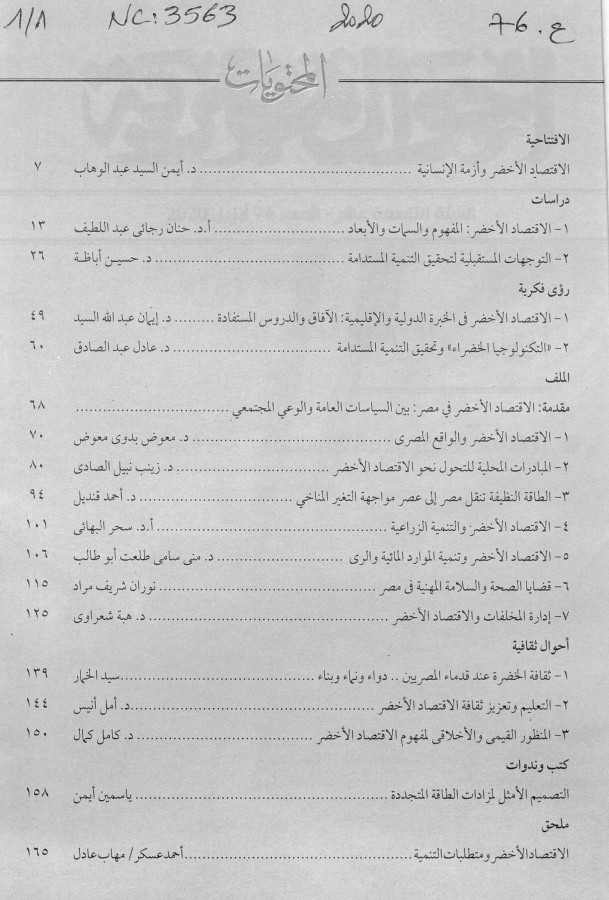 1/1 NC: 3563 2020 ع. 76
المحتويات
الافتتاحية
الاقتصاد الأخضر وأزمة الإنسانية ........ د. أيمن السيد عبد الوهاب ٧
دراسات
١- الاقتصاد الأخضر: المفهوم والسمات والأبعاد ........ أ.د. حنان رجائى عبد اللطيف ١٣
٢- التوجهات المستقبلية لتحقيق التنمية المستدامة ........ د. حسين أباظة ٢٦
رؤى فكرية
١- الاقتصاد الأخضر فى الخبرة الدولية والإقليمية: الآفاق والدروس المستفادة ........ د. إيمان عبد الله السيد ٤٩
٢- «التكنولوجيا الخضراء» وتحقيق التنمية المستدامة ........ د. عادل عبد الصادق ٦٠
الملف
مقدمة: الاقتصاد الأخضر في مصر: بين السياسات العامة والوعي المجتمعي ........ ٦٨
١- الاقتصاد الأخضر والواقع المصرى ........ د. معوض بدوى معوض ٧٠
٢- المبادرات المحلية للتحول نحو الاقتصاد الأخضر ........ د. زينب نبيل الصادى ٨٠
٣- الطاقة النظيفة تنقل مصر إلى عصر مواجهة التغير المناخي ........ د. أحمد قنديل ٩٤
٤- الاقتصاد الأخضر والتنمية الزراعية ........ أ.د. سحر البهائى ١٠١
٥- الاقتصاد الأخضر وتنمية الموارد المائية والرى ........ د. منى سامى طلعت أبو طالب ١٠٦
٦- قضايا الصحة والسلامة المهنية فى مصر ........ نوران شريف مراد ١١٥
٧- إدارة المخلفات والاقتصاد الأخضر ........ د. هبة شعراوى ١٢٥
أحوال ثقافية
١- ثقافة الخضرة عند قدماء المصريين .. دواء ونماء وبناء ........ سيد الخمار ١٣٩
٢- التعليم وتعزيز ثقافة الاقتصاد الأخضر ........ د. أمل أنيس ١٤٤
٣- المنظور القيمى والأخلاقى لمفهوم الاقتصاد الأخضر ........ د. كامل كمال ١٥٠
كتب وندوات
التصميم الأمثل لمزادات الطاقة المتجددة ........ ياسمين أيمن ١٥٨
ملحق
الاقتصاد الأخضر ومتطلبات التنمية ........ أحمد عسكر/ مهاب عادل ١٦٥